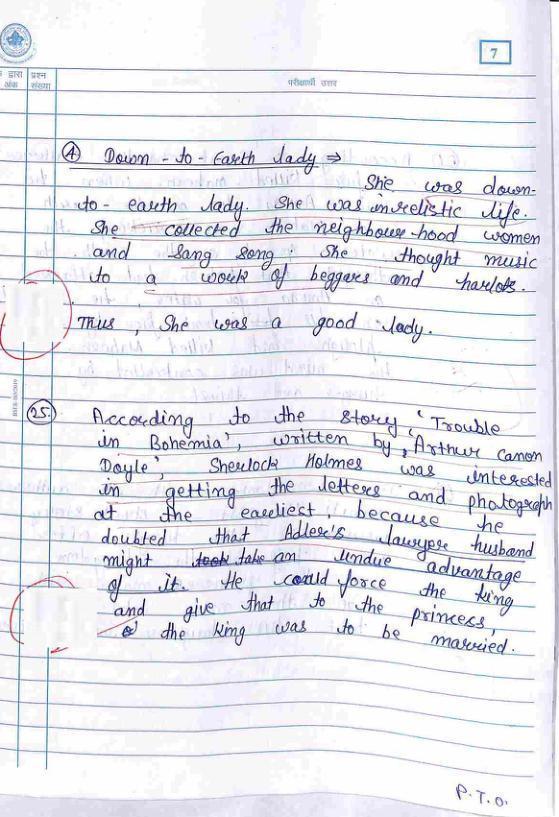 7
द्वारा प्रश्न
अंक संख्या
परीक्षार्थी उत्तर
④ Down-to-Earth lady ⇒
She was down-
to-earth lady. She was in relistic life.
She collected the neighbour-hood women
and sang song. She thought music
to a work of beggars and harlots.
Thus, She was a good lady.
25. According to the story 'Trouble
in Bohemia', written by, 'Arthur Canon
Doyle', Sherlock Holmes was interested
in getting the letters and photograph
at the eareliest because he
doubted that Adler's lawyer husband
might took take an undue advantage
of it. He could force the king
and give that to the princess,
the king was to be married.
P.T.O.